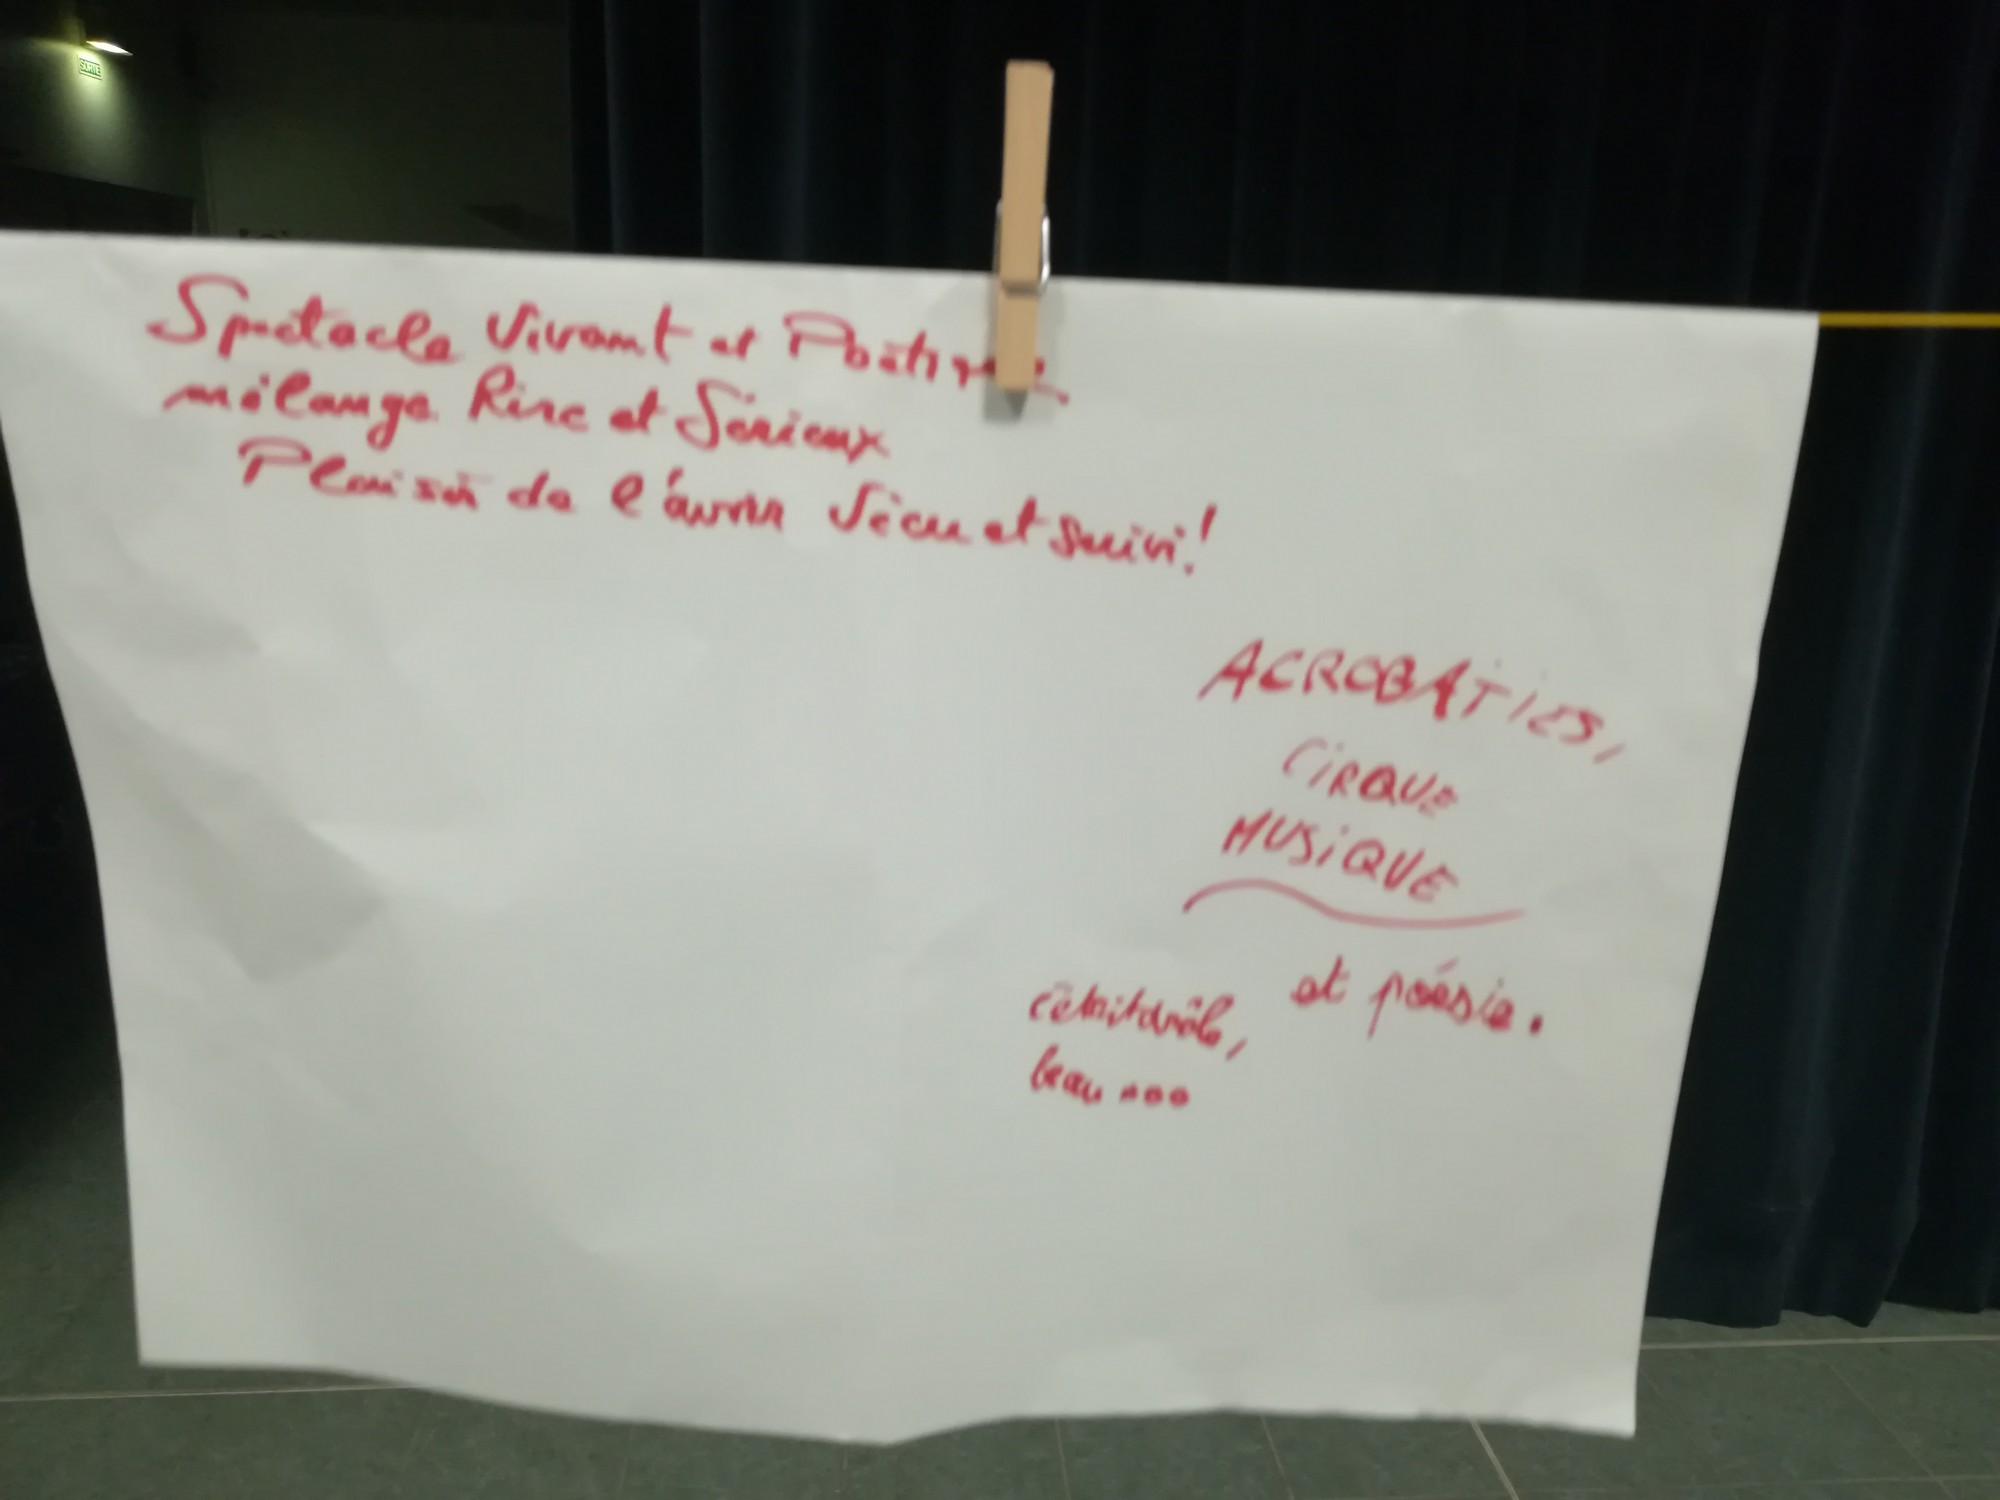 SORTIE
Spectacle Vivant et Poétique
mélange Rire et Sérieux
Plaisir de l'avoir Vécu et suivi!
ACROBATIES,
CIRQUE
MUSIQUE
et poésie.
c'était drôle,
beau...